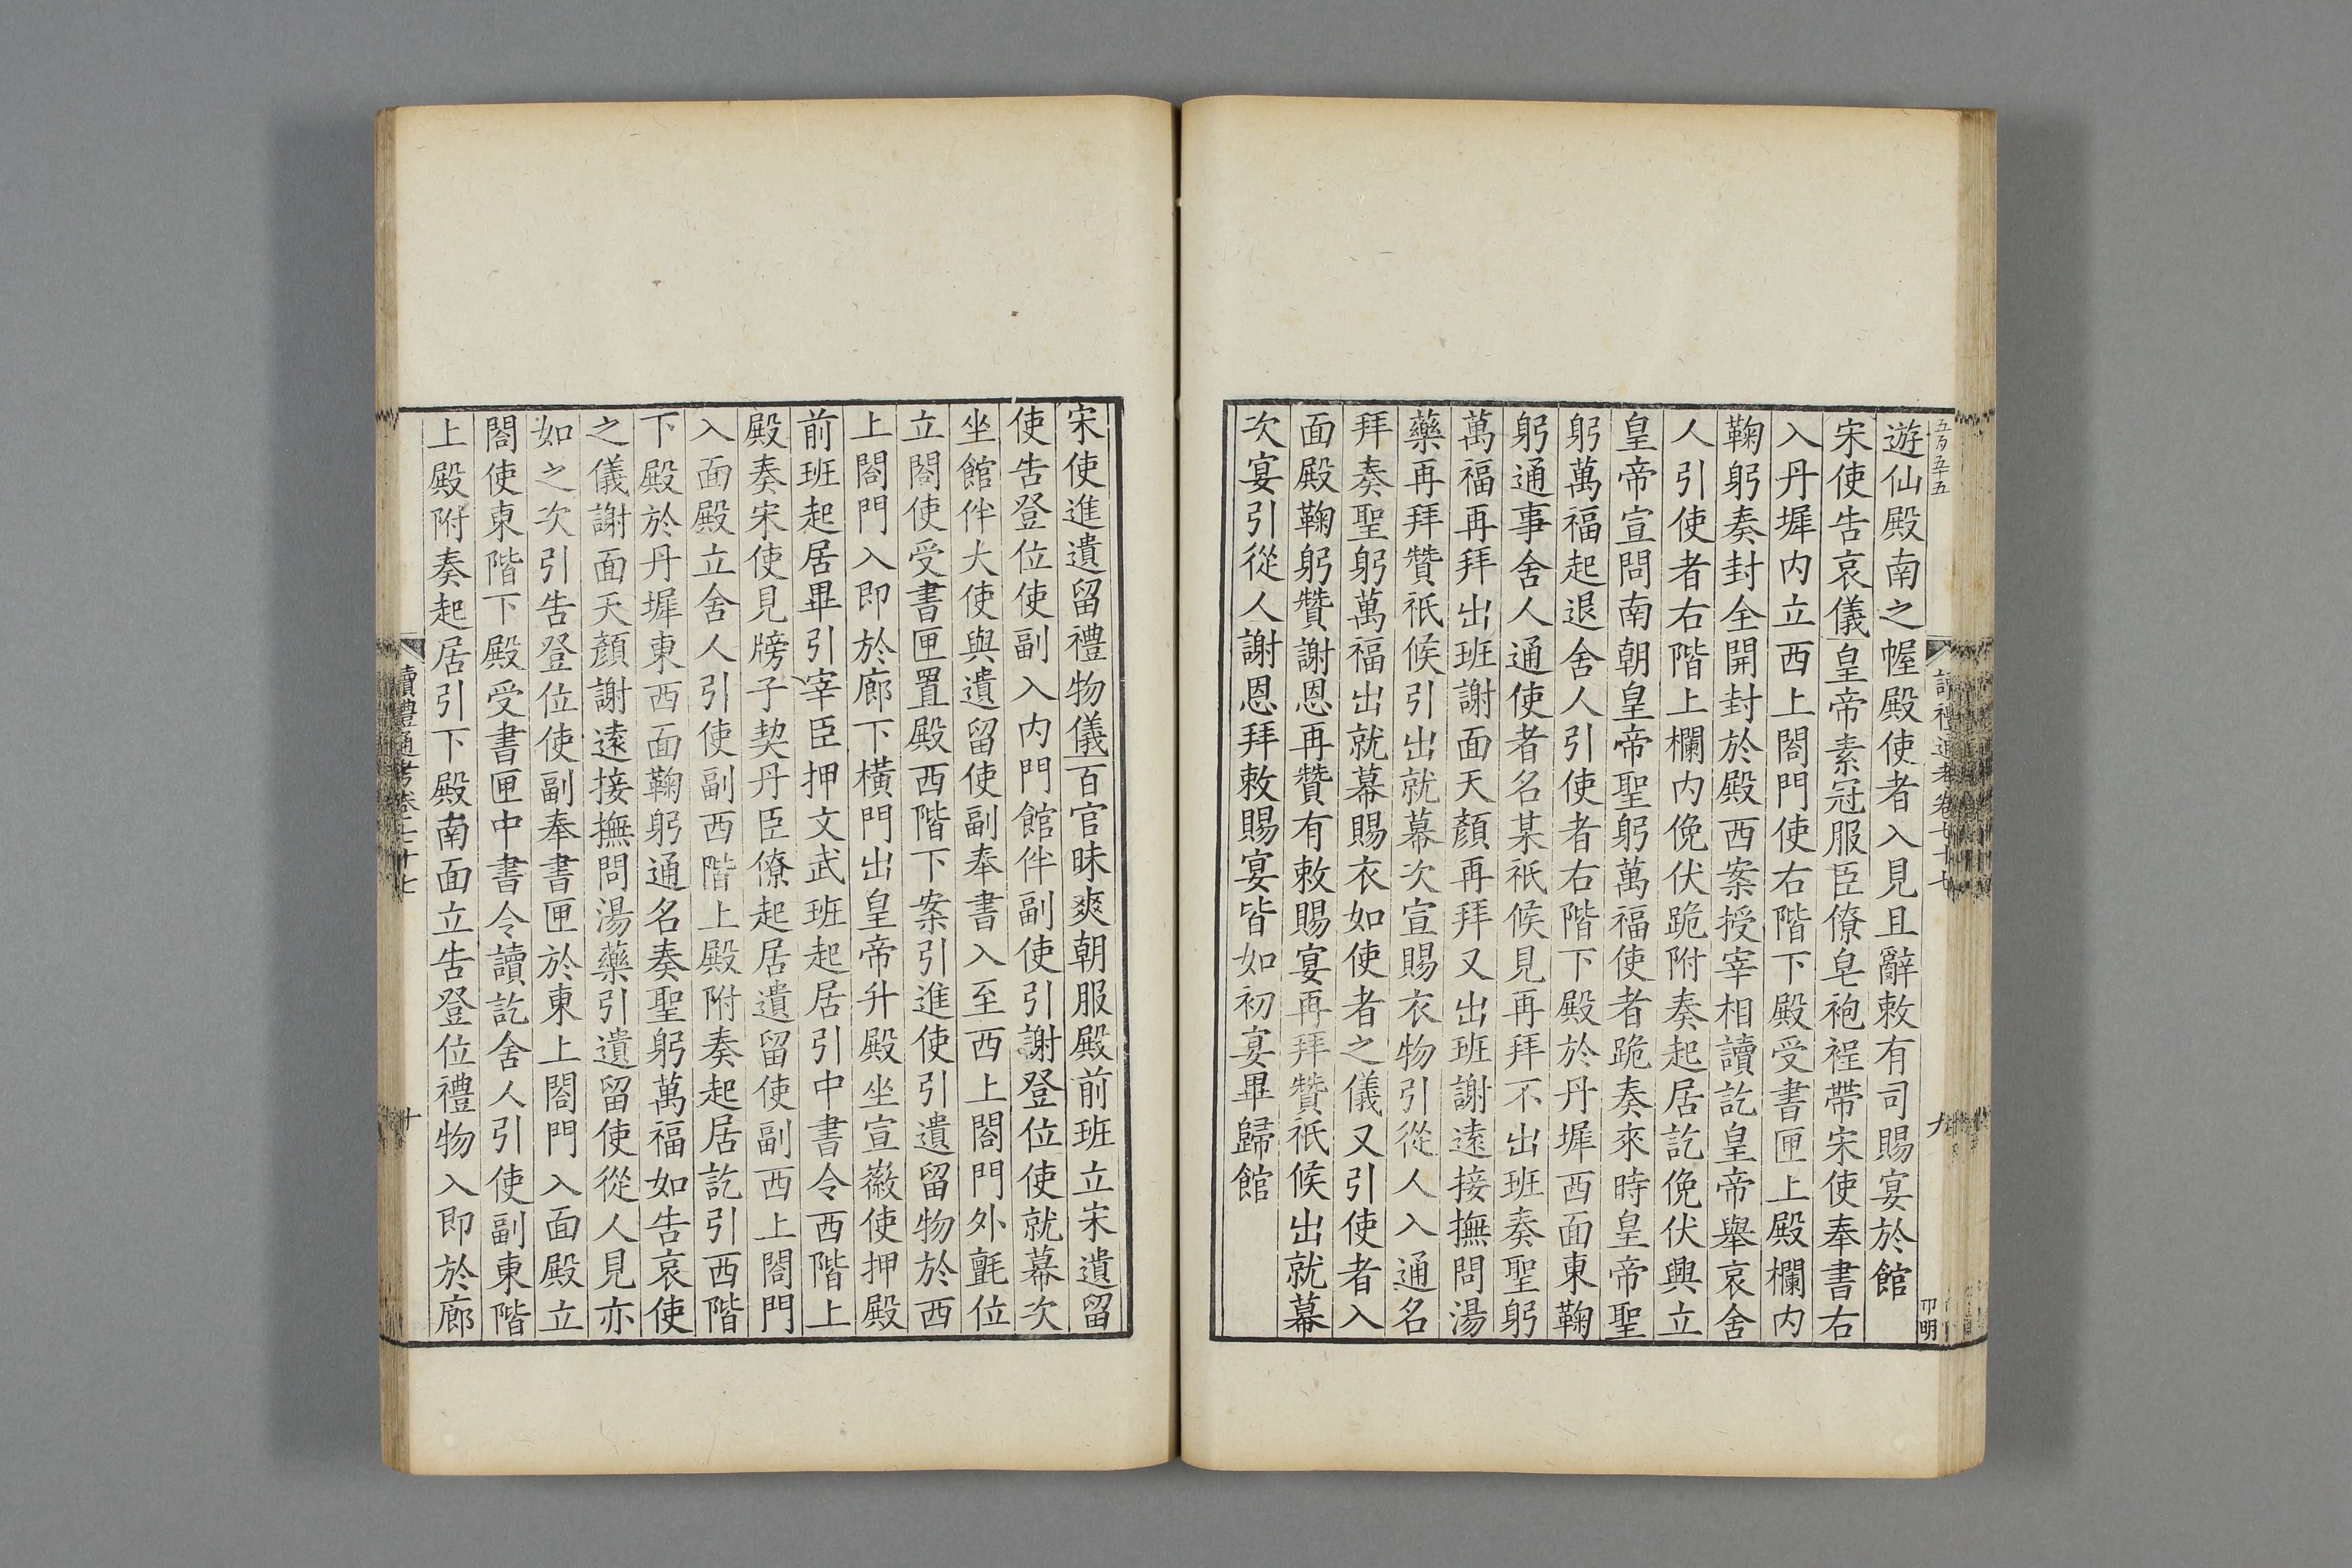 五百五十五
讀禮通考卷七十七
九
卬明
遊仙殿南之幄殿使者入見且辭敕有司賜宴於館
宋使告哀儀皇帝素冠服臣僚皂袍裎帶宋使奉書右
入丹墀内立西上閤門使右階下殿受書匣上殿欄内
鞠躬奏封全開封於殿西案授宰相讀訖皇帝舉哀舍
人引使者右階上欄内俛伏跪附奏起居訖俛伏興立
皇帝宣問南朝皇帝聖躬萬福使者跪奏來時皇帝聖
躬萬福起退舍人引使者右階下殿於丹墀西面東鞠
躬通事舍人通使者名某祇候見再拜不出班奏聖躬
萬福再拜出班謝面天顔再拜又出班謝逺接撫問湯
藥再拜贊祇候引出就幕次宣賜衣物引從人入通名
拜奏聖躬萬福出就幕賜衣如使者之儀又引使者入
面殿鞠躬贊謝恩再贊有敕賜宴再拜贊祇候出就幕
次宴引從人謝恩拜敕賜宴皆如初宴畢歸館
宋使進遺留禮物儀百官昧爽朝服殿前班立宋遺留
使告登位使副入内門館伴副使引謝登位使就幕次
坐館伴大使與遺留使副奉書入至西上閤門外氈位
立閤使受書匣置殿西階下案引進使引遺留物於西
上閤門入即於廊下横門出皇帝升殿坐宣徽使押殿
前班起居畢引宰臣押文武班起居引中書令西階上
殿奏宋使見牓子契丹臣僚起居遺留使副西上閤門
入面殿立舍人引使副西階上殿附奏起居訖引西階
下殿於丹墀東西面鞠躬通名奏聖躬萬福如告哀使
之儀謝面天顔謝逺接撫問湯藥引遺留使從人見亦
如之次引告登位使副奉書匣於東上閤門入面殿立
閤使東階下殿受書匣中書令讀訖舍人引使副東階
上殿附奏起居引下殿南面立告登位禮物入即於廊
讀禮通考卷七十七
十